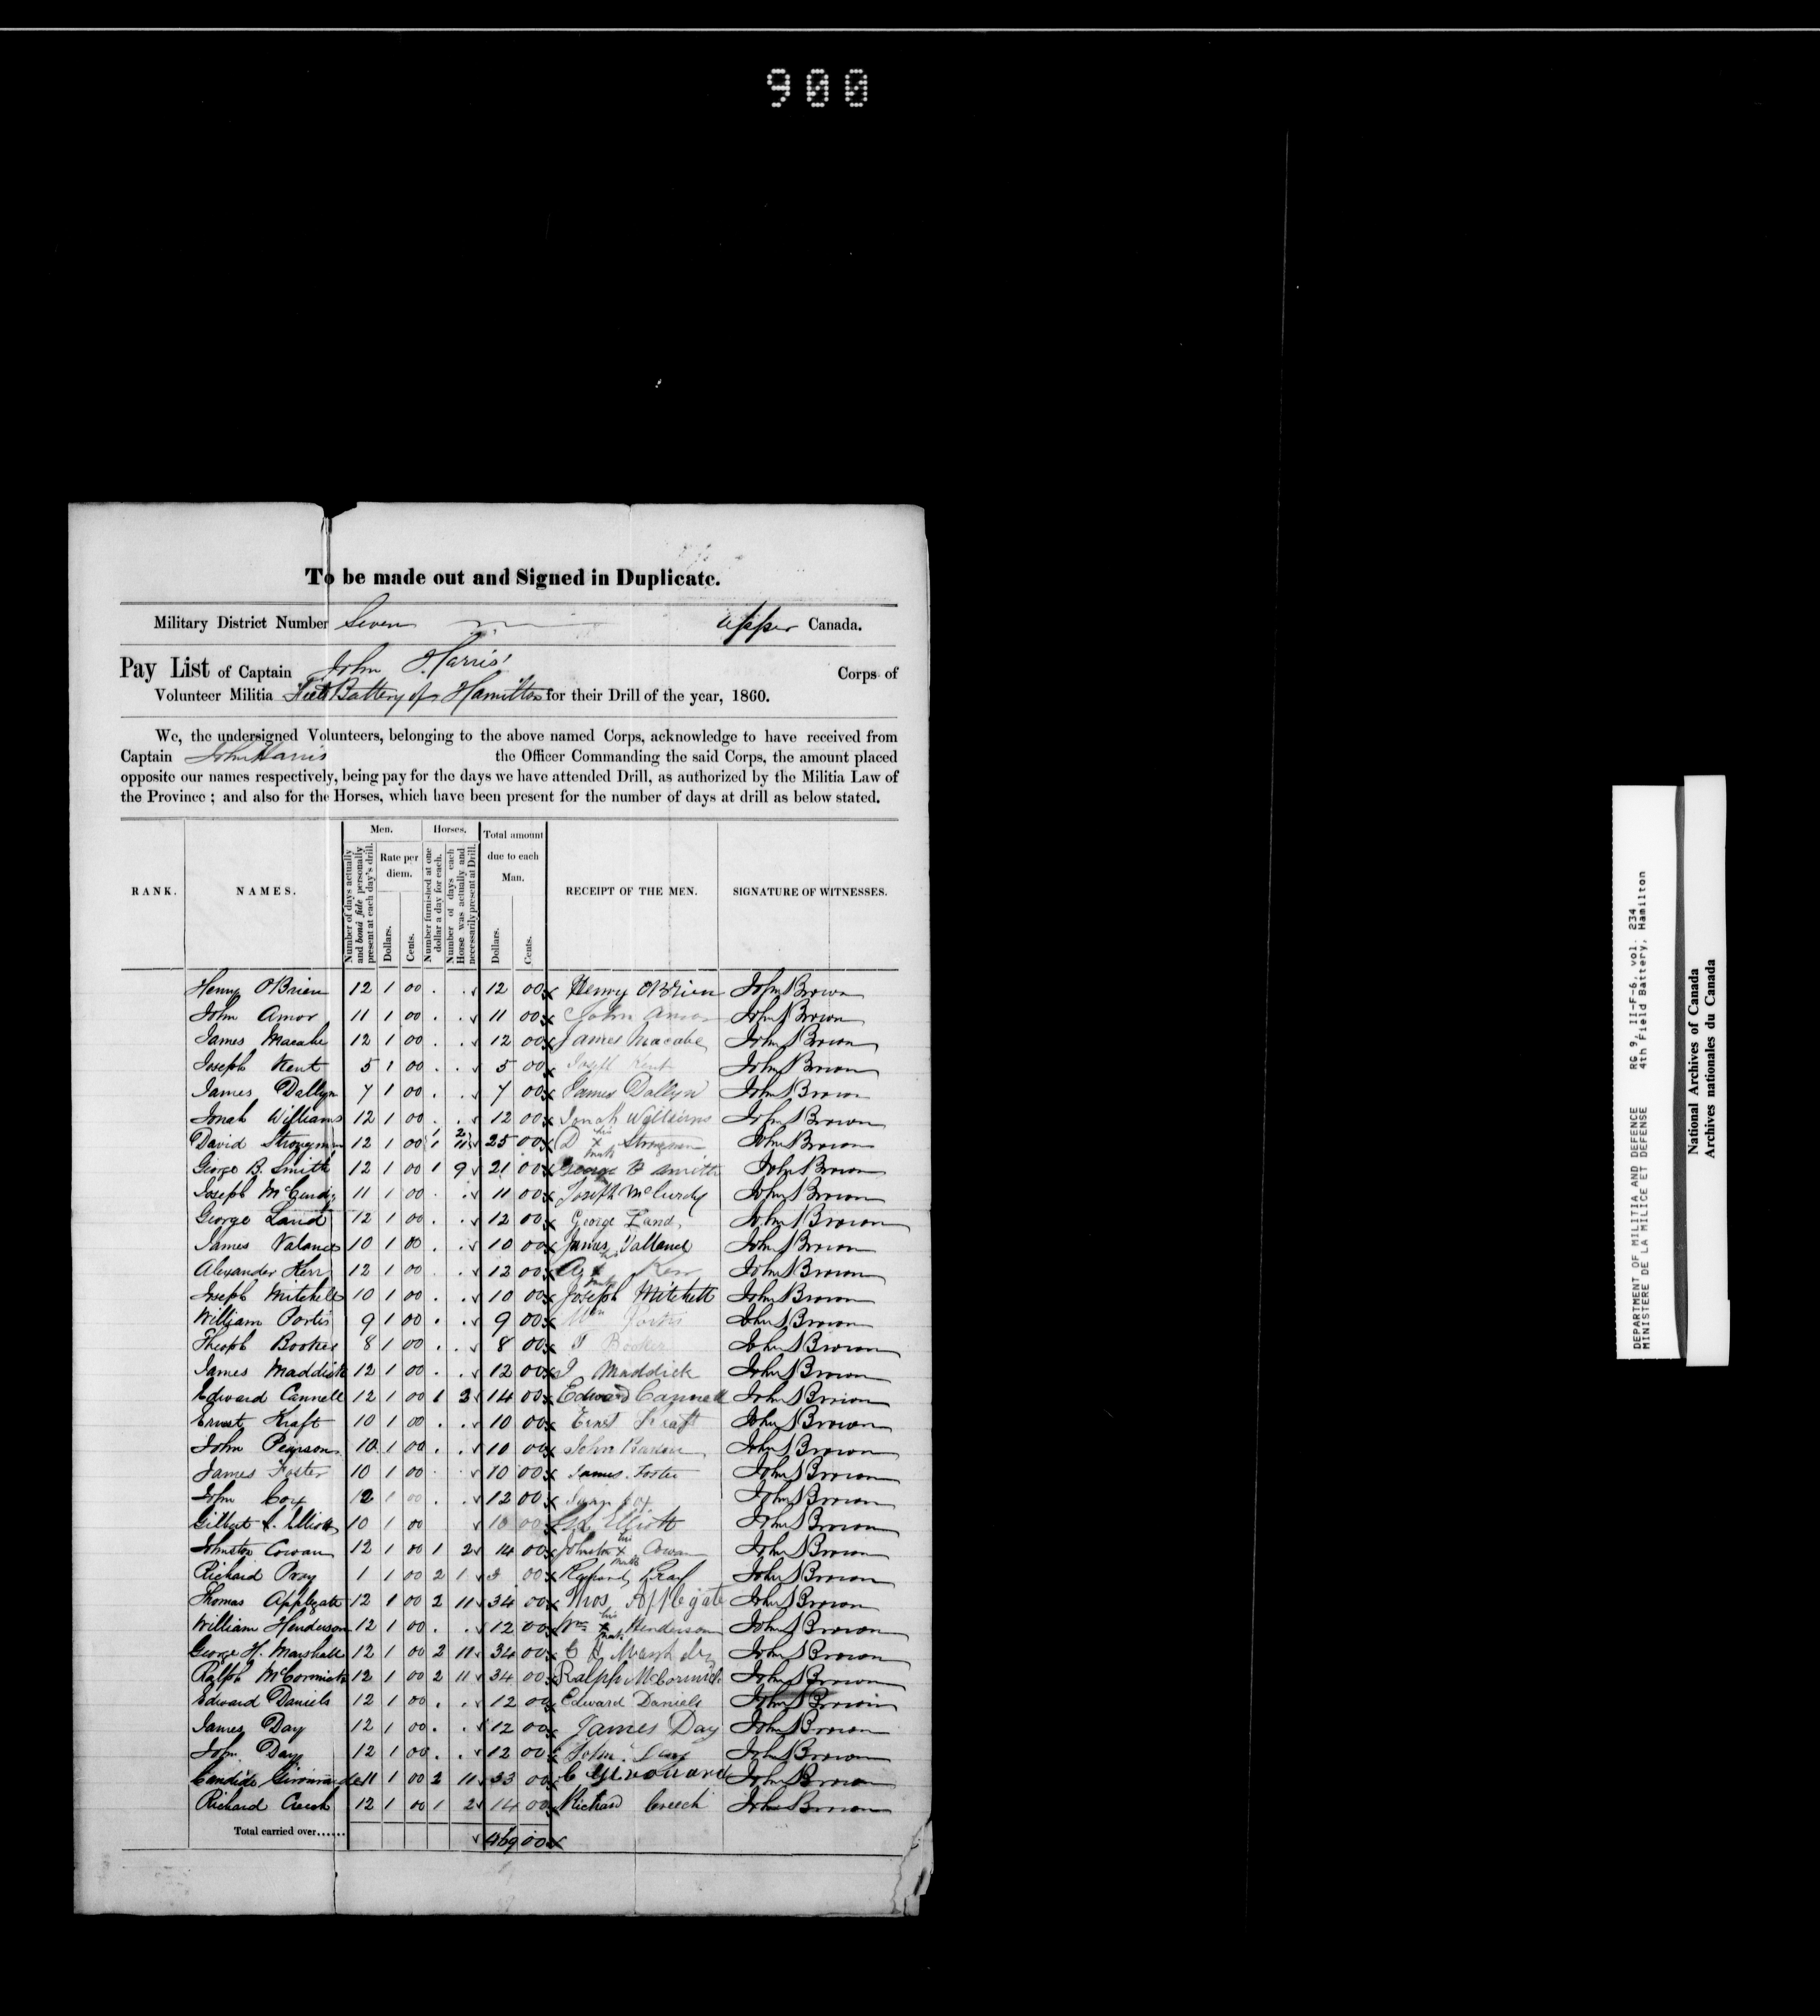 900
To be made out and Signed in Duplicate.
Military District Number Seven Upper Canada.
Pay List of Captain John Harris' Corps of
Volunteer Militia Field Battery of Hamilton for their Drill of the year, 1860.
We, the undersigned Volunteers, belonging to the above named Corps, acknowledge to have received from
Captain John Harris the Officer Commanding the said Corps, the amount placed
opposite our names respectively, being pay for the days we have attended Drill, as authorized by the Militia Law of
the Province; and also for the Horses, which have been present for the number of days at drill as below stated.
RANK. NAMES. Men. Horses. Total amount due to each Man. RECEIPT OF THE MEN. SIGNATURE OF WITNESSES.
Number of days actually and bonâ fide personally present at each day's drill. Rate per diem. Dollars. Cents. Number furnished at one dollar a day for each. Number of days each Horse was actually and necessarily present at Drill. Dollars. Cents.
Henry O'Brien 12 1 00 . . √ 12 00 x Henry O'Brien John Brown
John Amor 11 1 00 . . √ 11 00 x John Amor John Brown
James Macabe 12 1 00 . . √ 12 00 x James Macabe John Brown
Joseph Kent 5 1 00 . . √ 5 00 x Joseph Kent John Brown
James Dallyn 7 1 00 . . √ 7 00 x James Dallyn John Brown
Jonah Williams 12 1 00 . . √ 12 00 x Jonah Williams John Brown
David Strongman 12 1 00 1 1 2 11 √ 25 00 x D his x mark Strongman John Brown
George B. Smith 12 1 00 1 9 √ 21 00 x George B Smith John Brown
Joseph McCurdy 11 1 00 . . √ 11 00 x Joseph McCurdy John Brown
George Land 12 1 00 . . √ 12 00 x George Land John Brown
James Valance 10 1 00 . . √ 10 00 x James Vallance John Brown
Alexander Kerr 12 1 00 . . √ 12 00 x his x mark Kerr John Brown
Joseph Mitchell 10 1 00 . . √ 10 00 x Joseph Mitchell John Brown
William Portis 9 1 00 . . √ 9 00 x Wm Portis John Brown
Theoph Booker 8 1 00 . . √ 8 00 x T Booker John Brown
James Maddick 12 1 00 . . √ 12 00 x J Maddick John Brown
Edward Cannell 12 1 00 1 2 √ 14 00 x Edward Cannell John Brown
Ernest Kraft 10 1 00 . . √ 10 00 x Ernst Kraft John Brown
John Pearson 10 1 00 . . √ 10 00 x John John Brown
James Foster 10 1 00 . . √ 10 00 x James Foster John Brown
John Cox 12 1 00 . . √ 12 00 x Cox John Brown
Gilbert L. Elliott 10 1 00 √ 10 00 x Elliott John Brown
Johnston Cowan 12 1 00 1 2 √ 14 00 x Johnston his x mark Cowan John Brown
Richard Pray 1 1 00 2 1 √ 3 00 x Pray John Brown
Thomas Applegate 12 1 00 2 11 √ 34 00 x Thos Applegate John Brown
William Henderson 12 1 00 . . √ 12 00 x Wm his x mark Henderson John Brown
George H. Marshall 12 1 00 2 11 √ 34 00 x John Brown
Ralph McCormick 12 1 00 2 11 √ 34 00 x Ralph McCormick John Brown
Edward Daniels 12 1 00 . . √ 12 00 x Edward Daniels John Brown
James Day 12 1 00 . . √ 12 00 x James Day John Brown
John Day 12 1 00 . . √ 12 00 x John Day John Brown
Candide 11 1 00 2 11 √ 33 00 x C Girouard John Brown
Richard Creech 12 1 00 1 2 √ 14 00 x Richard Creech John Brown
Total carried over...... √ 469 00 x
DEPARTMENT OF MILITIA AND DEFENCE RG 9, II-F-6, vol. 234
MINISTERE DE LA MILICE ET DEFENSE 4th Field Battery, Hamilton
National Archives of Canada
Archives nationales du Canada